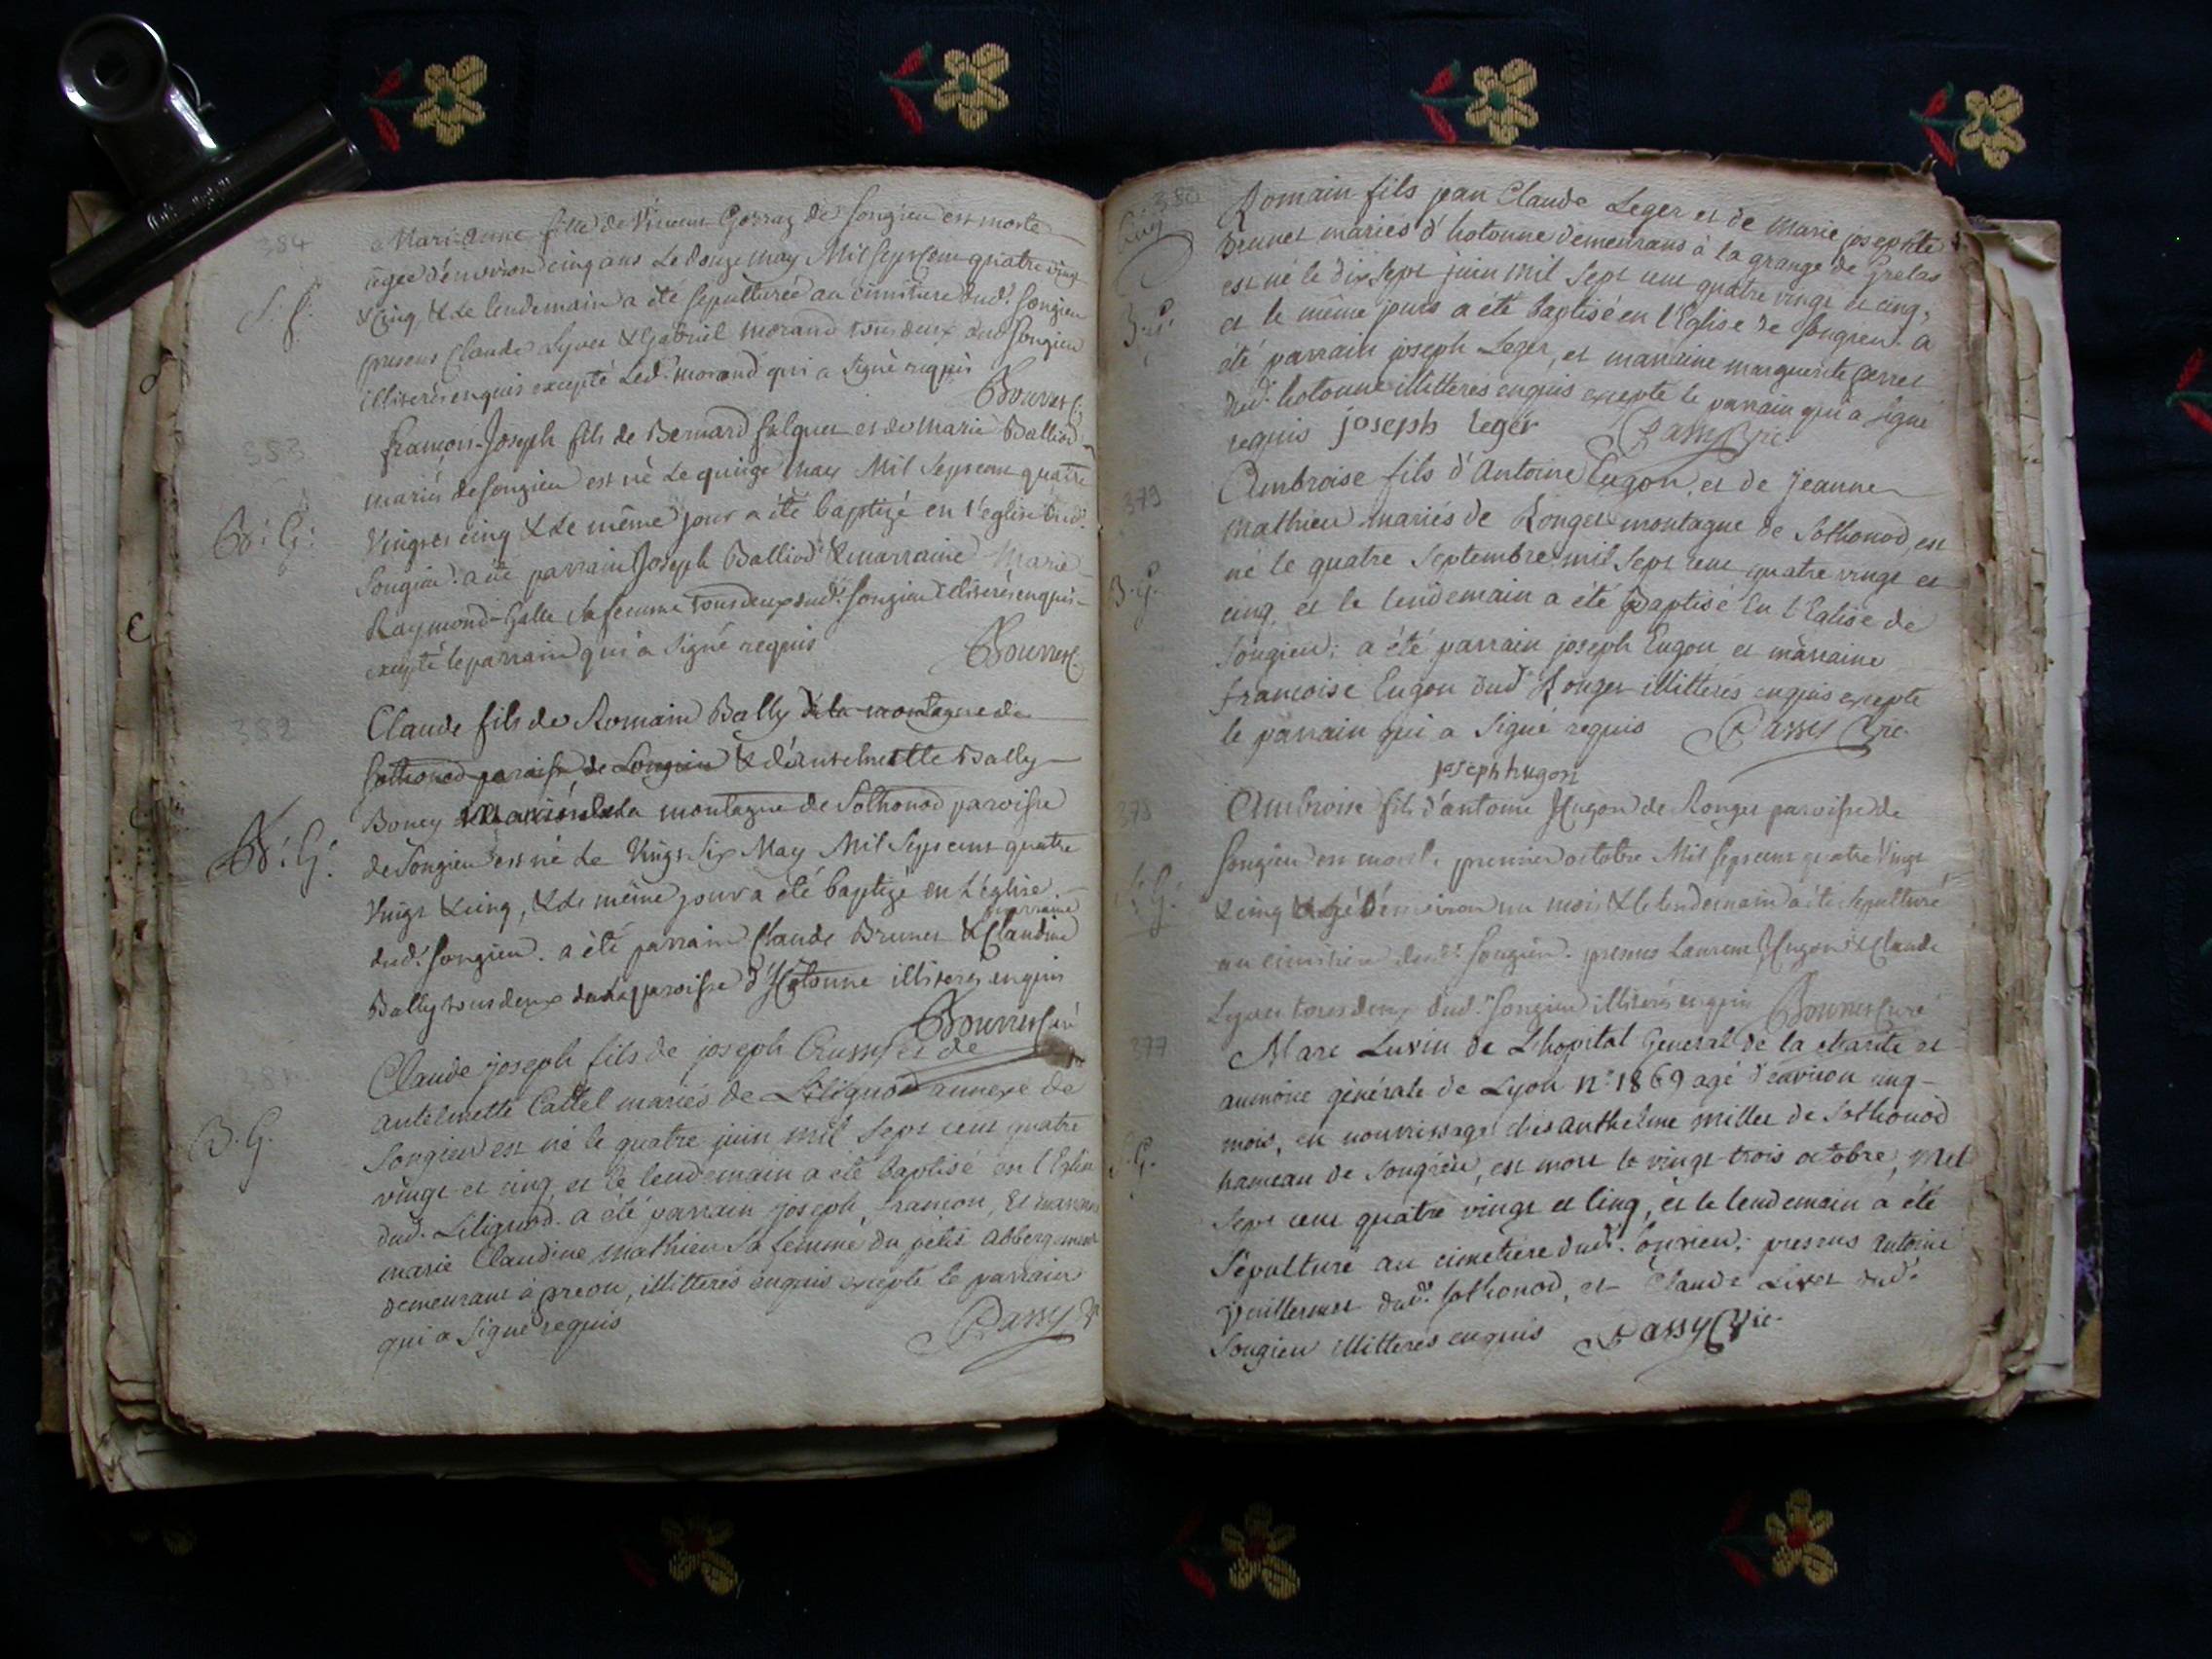 384
Mari-anne fille de Vincent Gorraz de Songieu est morte
agée d'environ cinq ans Le douze may Mil Sept cent quatre vingt
& Cinq, & Le lendemain a été sepulturée au cimitiere dud.t Songieu
presens Claude Lyvet & Gabriel morand tous deux dud Songieu
illiterés enquis excepté Led.t morand qui a Signé requis
S. G.
Bouvret C.
383
françois-Joseph fils de Bernard falquet et de Marie Balliod
mariés de Songieu est né Le quinze May Mil Sept cent quatre
Vingt et cinq & Le même jour a été baptizé en l'église dud.
B: G:
Songieu. a été parrain Joseph Balliod & marraine Marie
Raymond-Galle Sa femme tous deux dud.t Songieu illiterés enquis
excepté le parrain qui a Signé requis
Bouvret C.
382
Claude fils de Romain Bally de la montagne de
Sothonod paroisse de Songieu & d'Antelmette Bally
Boney mariés de la montagne de Sothonod paroisse
B: G:
de Songieu est né Le Vingt Six May Mil Sept cent quatre
Vingt & cinq, & Le même jour a été baptizé en L'église
marraine
dud.t Songieu. a été parrain Claude Brunet & Claudine
Bally tous deux de la paroisse d'Hotonne illiterés enquis
Bouvret Curé
381
Claude joseph fils de joseph Crussy et de
antelmette Cattel mariés de Lilignod annexe de
B. G.
Songieu est né le quatre juin mil Sept cent quatre
vingt et cinq et le lendemain a été baptisé en l'Eglise
dud. Lilignod. a été parrain joseph framon, Et marraine
marie Claudine mathieu Sa femme du petit abbergement
demeurant à preou, illitterés enquis excepté le parrain
qui a Signé requis
Passy V
380
Romain fils jean Claude Leger et de Marie josephte
Brunet mariés d'hotonne demeurans à la grange de Grelas
est né le dix Sept juin mil Sept cent quatre vingt et cinq,
B. G.
et le même jours a été baptisé en l'Eglise de Songieu. a
été parrain joseph Leger, et marraine marguerite Carrel
dud. hotonne illitterés enquis excepte le parrain qui a Signé
requis joseph leger Passy Vic.
379
Ambroise fils d'Antoine Eugon, et de Jeanne
mathieu mariés de Ronget montagne de Sothonod, est
né le quatre Septembre mil Sept cent quatre vingt et
B. G.
cinq, et le lendemain a été Baptisé En l'Eglise de
Songieu; a été parrain joseph Eugon et marraine
francoise Eugon dud.t Ronget illitterés enquis excepte
le parrain qui a Signé requis Passy Vic.
joseph hugon
378
Ambroise fils d'antoine Hugon de Ronget paroisse de
Songieu est mort le premier octobre Mil Sept cent quatre Vingt
S. G.
& cinq agé d'environ un mois & le lendemain a été Sepulturé
au cimitiere dud.t Songieu. presens Laurent Hugon & Claude
Lyvet tous deux dud.t Songieu illiterés enquis Bouvret Curé
377
Marc Luxin de L'hopital General de la charité et
aumone générale de Lyon n.o 1869 agé d'environ cinq
mois, en nourrissage ches anthelme millet de Sothonod
S. G.
hameau de Songieu, est mort le vingt-trois octobre, Mil
Sept cent quatre vingt et Cinq, et le lendemain a été
Sépulturé au cimetiere dud.t Songieu; presens antoine
Vuillermet dud.t Sothonod, et Claude Livet dud.
Songieu illitterés enquis Passy Vic.